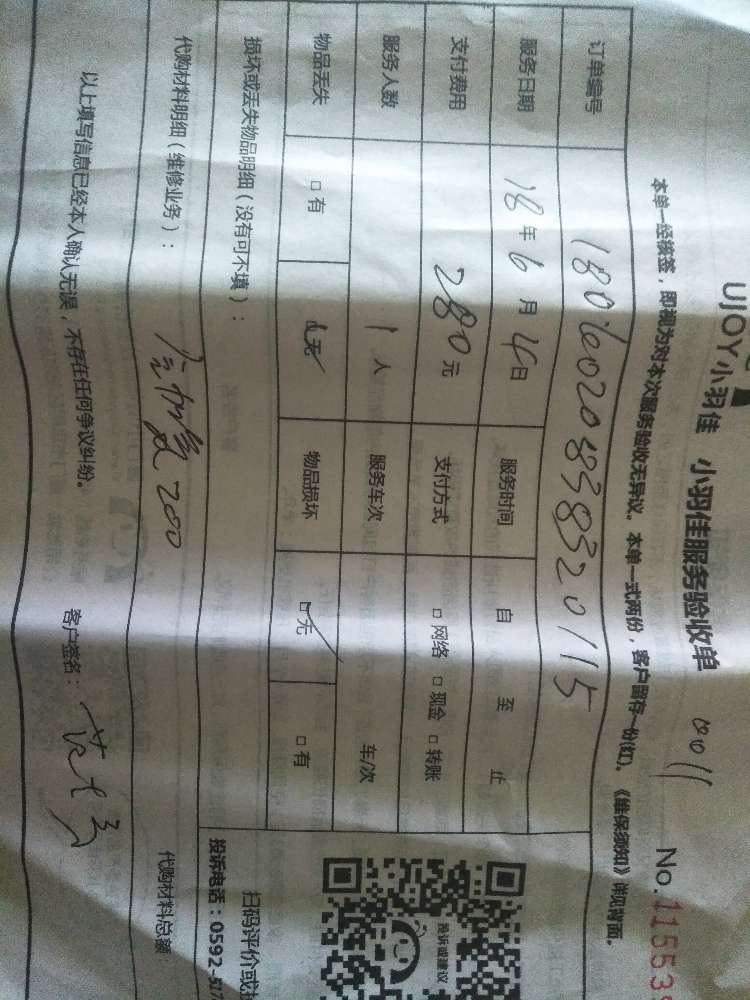 UJOY小羽佳 小羽佳服务验收单
No.11553
本单一经核签，即视为对本次服务验收无异议。本单一式两份，客户留存一份(红)。《维保须知》详见背面。
订单编号 1806020838320115
服务日期 18年6月4日 服务时间 自 至 止
支付费用 280元 支付方式 □网络 □现金 □转账
服务人数 1人 服务车次 车/次
物品丢失 □有 □无 物品损坏 □无 □有
损坏或丢失物品明细（没有可不填）：
代购材料明细（维修业务）： 200
代购材料总额
以上填写信息已经本人确认无误，不存在任何争议纠纷。 客户签名：
投诉或建议
扫码评价或
投诉电话：0592-57